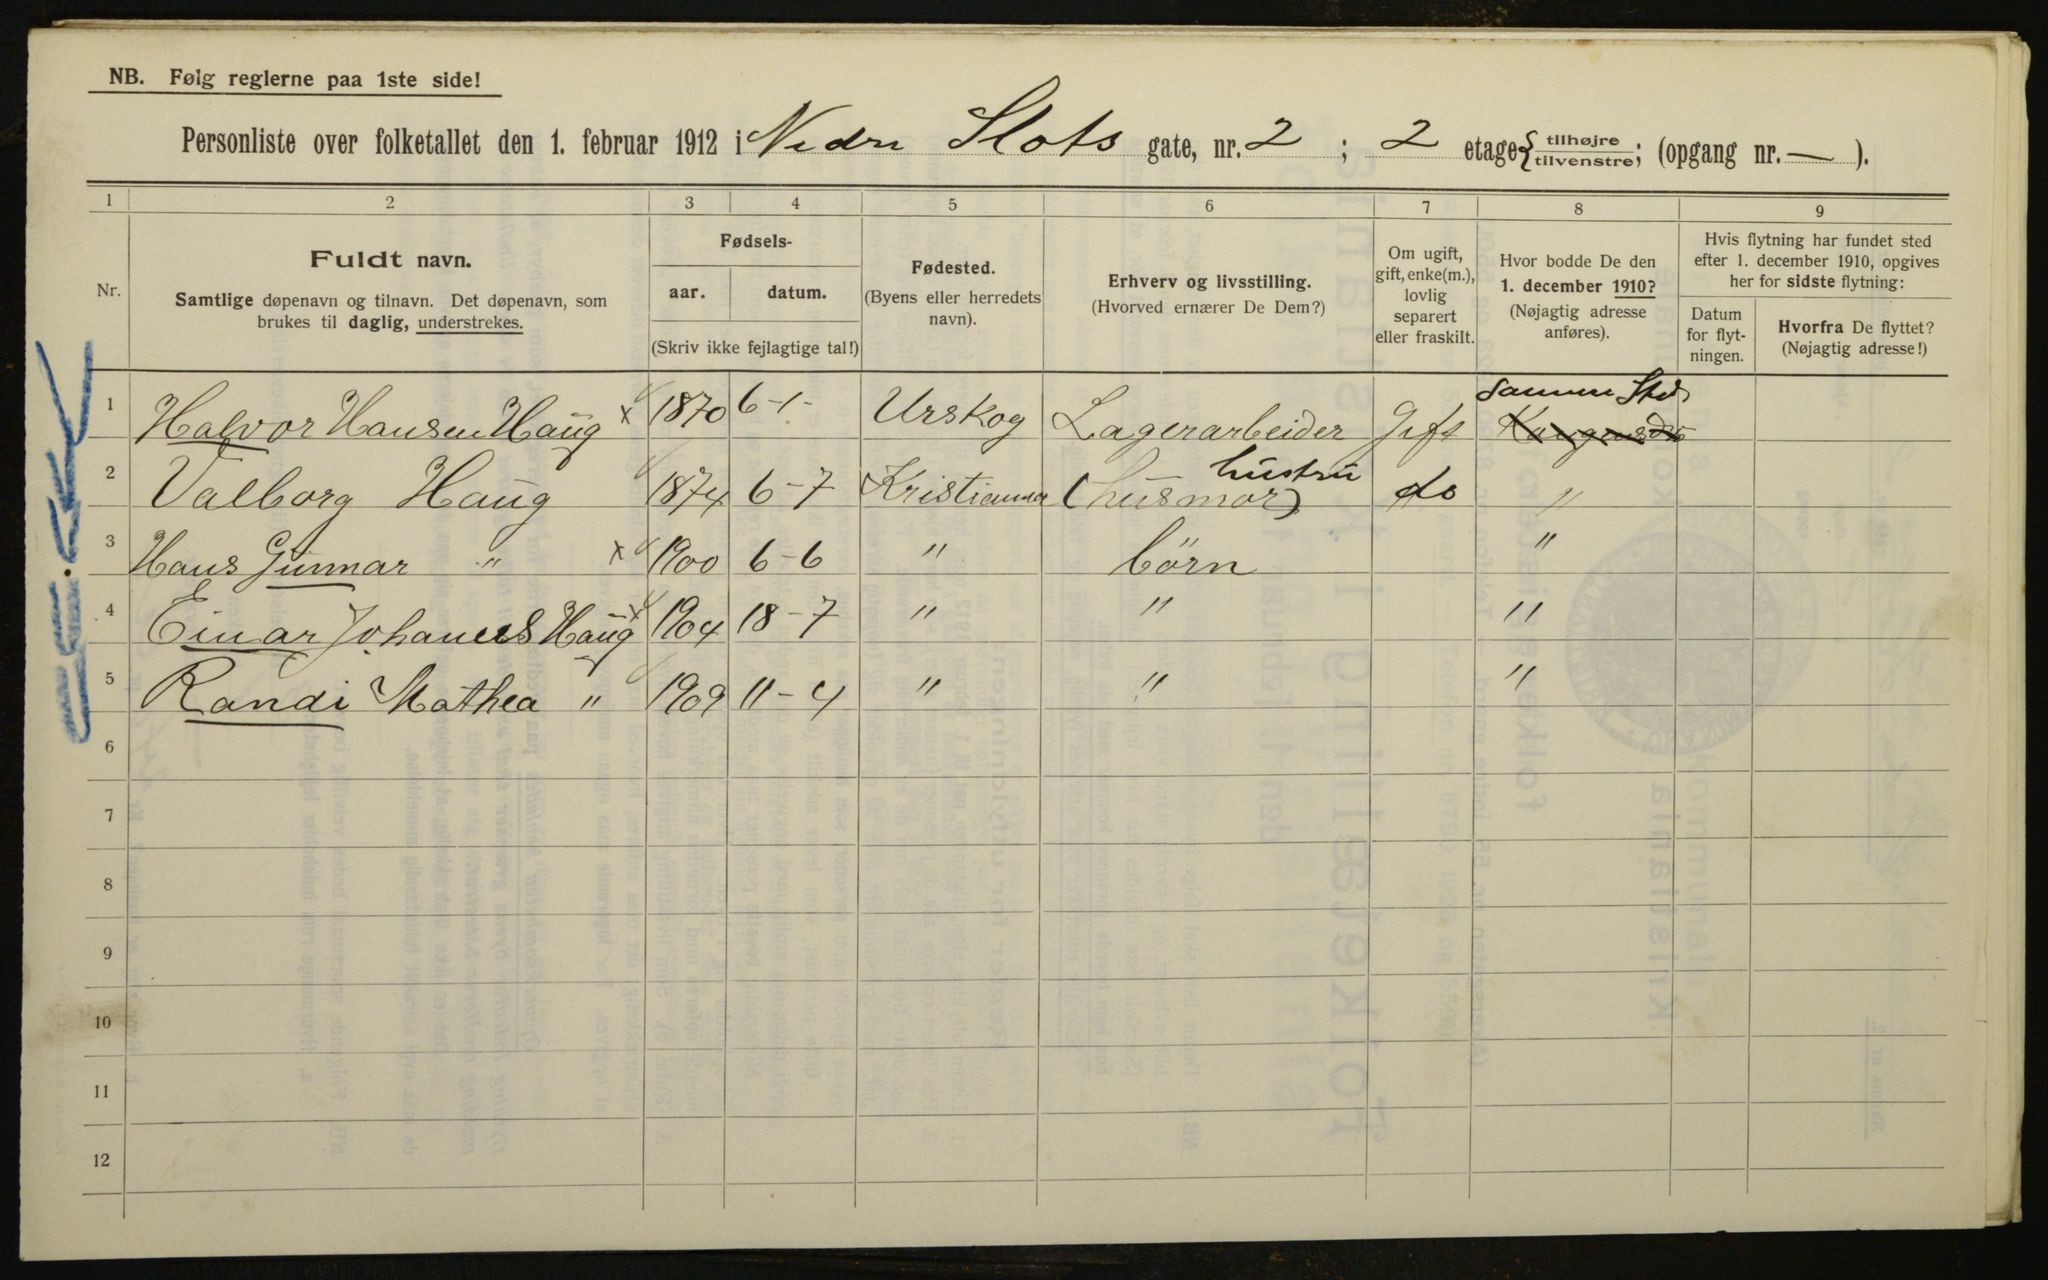 NB. Følg reglerne paa 1ste side!
Personliste over folketallet den 1. februar 1912 i Nedre Slots gate, nr. 2 ; 2 etage { tilhøjre tilvenstre; (opgang nr. — ).
1 2 3 4 5 6 7 8 9
Nr.
Fuldt navn.
Samtlige døpenavn og tilnavn. Det døpenavn, som
brukes til daglig, understrekes.
Fødsels-
aar. datum.
(Skriv ikke fejlagtige tal!)
Fødested.
(Byens eller herredets
navn).
Erhverv og livsstilling.
(Hvorved ernærer De Dem?)
Om ugift,
gift, enke(m.),
lovlig
separert
eller fraskilt.
Hvor bodde De den
1. december 1910?
(Nøjagtig adresse
anføres).
Hvis flytning har fundet sted
efter 1. december 1910, opgives
her for sidste flytning:
Datum
for flyt-
ningen.
Hvorfra De flyttet?
(Nøjagtig adresse!)
samme Sted
1 Halvor Hansen Haug x 1870 6-1- Urskog Lagerarbeider Gift
hustru
2 Valborg Haug 1874 6-7 Kristiania (husmor) do "
3 Hans Gunnar " x 1900 6-6 " börn "
4 Einar Johannes Haug x 1904 18-7 " " "
5 Randi Mathea " 1909 11-4 " " "
6
7
8
9
10
11
12